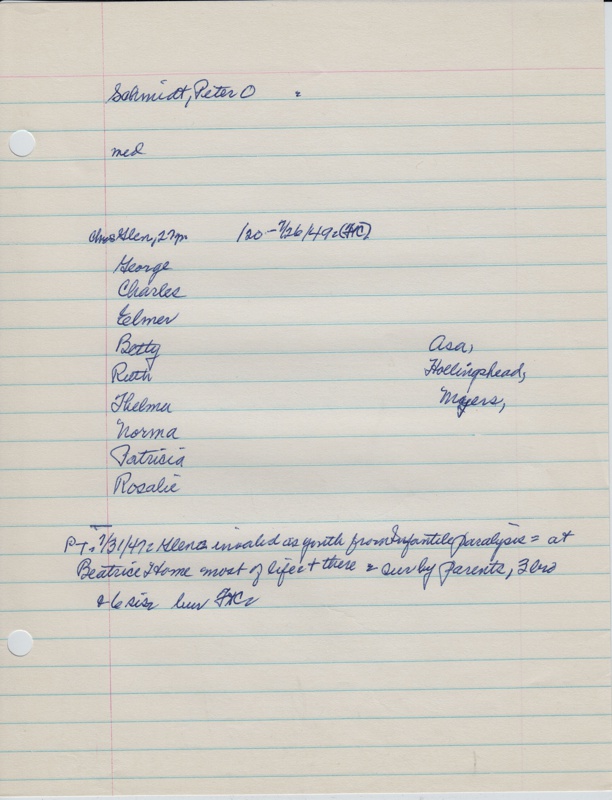 Schmidt, Peter O
med
Glen, 27m 120 - 7/26/49 (FHC)
George
Charles
Elmer
Betty Asa,
Ruth Hollingshead,
Thelma Myers,
Norma
Patricia
Rosalie
PT 7/31/47 Glen invalid as youth from Infantile paralysis = at
Beatrice Home most of life + there sur by parents, 3 bro
+ 6 sis bur FHC